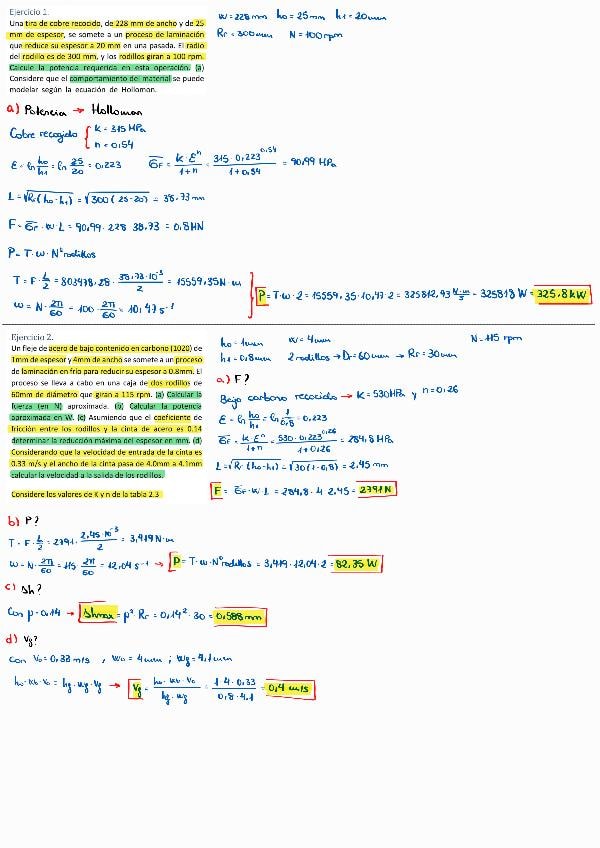 Ejercicio 1.
Una tira de cobre recocido, de 228 mm de ancho y de 25
mm de espesor, se somete a un proceso de laminación
que reduce su espesor a 20 mm en una pasada. El radio
del rodillo es de 300 mm, y los rodillos giran a 100 rpm.
Calcule la potencia requerida en esta operación. (a)
Considere que el comportamiento del material se puede
modelar según la ecuación de Hollomon.
W = 228 mm h₀ = 25 mm h₁ = 20 mm
Rr = 300 mm N = 100 rpm
a) Potencia → Hollomon
Cobre recogido { K = 315 MPa
n = 0,54
ε = ln h₀/h₁ = ln 25/20 = 0,223 σ̄f = K·εⁿ/1+n = 315·0,223^0,54/1+0,54 = 90,99 MPa
L = √Rr(h₀-h₁) = √300(25-20) = 38,73 mm
F = σ̄f · w · L = 90,99 · 228 · 38,73 = 0,8 MN
P = T · ω · Nº rodillos
T = F · L/2 = 803478,28 · 38,73·10⁻³/2 = 15559,35 N·m
ω = N · 2π/60 = 100 · 2π/60 = 10,47 s⁻¹
P = T·ω·2 = 15559,35·10,47·2 = 325812,93 N·m/s = 325813 W = 325,8 kW
Ejercicio 2.
Un fleje de acero de bajo contenido en carbono (1020) de
1mm de espesor y 4mm de ancho se somete a un proceso
de laminación en frío para reducir su espesor a 0.8mm. El
proceso se lleva a cabo en una caja de dos rodillos de
60mm de diámetro que giran a 115 rpm. (a) Calcular la
fuerza (en N) aproximada. (b) Calcular la potencia
aproximada en W. (c) Asumiendo que el coeficiente de
fricción entre los rodillos y la cinta de acero es 0.14
determinar la reducción máxima del espesor en mm. (d)
Considerando que la velocidad de entrada de la cinta es
0.33 m/s y el ancho de la cinta pasa de 4.0mm a 4.1mm
calcular la velocidad a la salida de los rodillos.
Considere los valores de K y n de la tabla 2.3
h₀ = 1mm w = 4mm N = 115 rpm
h₁ = 0,8mm 2 rodillos → D = 60mm → Rr = 30mm
a) F?
Bajo carbono recocido → K = 530 MPa y n = 0,26
ε = ln h₀/h₁ = ln 1/0,8 = 0,223
σ̄f = K·εⁿ/1+n = 530·0,223^0,26/1+0,26 = 284,8 MPa
L = √Rr(h₀-h₁) = √30(1-0,8) = 2,45 mm
F = σ̄f · w · L = 284,8 · 4 · 2,45 = 2791 N
b) P?
T = F · L/2 = 2791 · 2,45·10⁻³/2 = 3,419 N·m
ω = N · 2π/60 = 115 2π/60 = 12,04 s⁻¹ → P = T·ω·Nº rodillos = 3,419·12,04·2 = 82,35 W
c) Δh?
Con μ = 0,14 → Δhmax = μ² Rr = 0,14² · 30 = 0,588 mm
d) Vf?
con V₀ = 0,33 m/s , w₀ = 4mm ; wf = 4,1mm
h₀·w₀·V₀ = hf·wf·Vf → Vf = h₀·w₀·V₀/hf·wf = 1·4·0,33/0,8·4.1 = 0,4 m/s